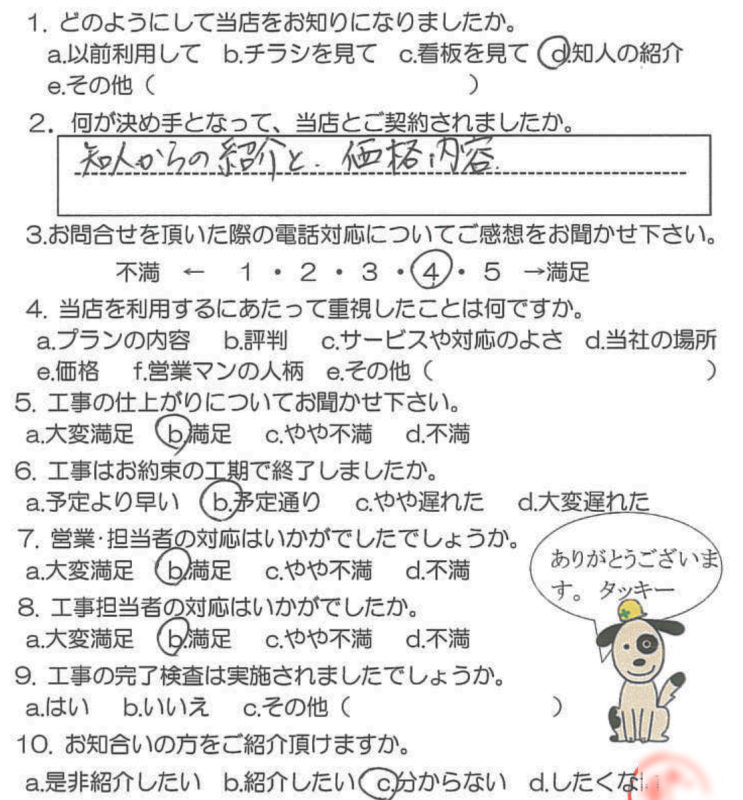 1. どのようにして当店をお知りになりましたか。
a.以前利用して b.チラシを見て c.看板を見て d.知人の紹介
e.その他（ ）
2. 何が決め手となって、当店とご契約されましたか。
知人からの紹介と、価格内容.
3.お問合せを頂いた際の電話対応についてご感想をお聞かせ下さい。
不満 ← 1 ・ 2 ・ 3 ・ 4 ・ 5 →満足
4. 当店を利用するにあたって重視したことは何ですか。
a.プランの内容 b.評判 c.サービスや対応のよさ d.当社の場所
e.価格 f.営業マンの人柄 e.その他（ ）
5. 工事の仕上がりについてお聞かせ下さい。
a.大変満足 b.満足 c.やや不満 d.不満
6. 工事はお約束の工期で終了しましたか。
a.予定より早い b.予定通り c.やや遅れた d.大変遅れた
7. 営業・担当者の対応はいかがでしたでしょうか。
a.大変満足 b.満足 c.やや不満 d.不満
8. 工事担当者の対応はいかがでしたか。
a.大変満足 b.満足 c.やや不満 d.不満
ありがとうございま
す。 タッキー
9. 工事の完了検査は実施されましたでしょうか。
a.はい b.いいえ c.その他（ ）
10. お知合いの方をご紹介頂けますか。
a.是非紹介したい b.紹介したい c.分からない d.したくない